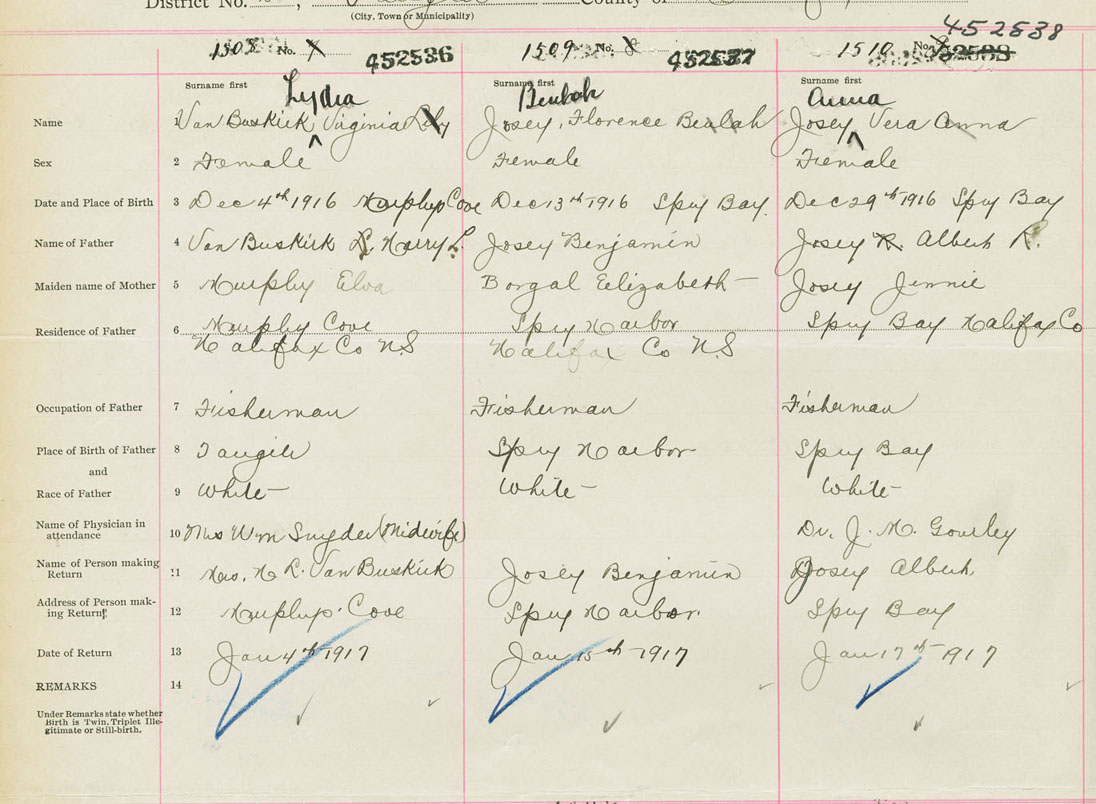 District No. County of
(City, Town or Municipality)
452538
1508 No. 7 452536 1509 No. 8 452537 1510 No. 452538
Surname first Surname first Surname first
Lydia Beulah Anna
Name 1 Van Buskirk, Virginia Josey, Florence Beulah Josey Vera Anna
Sex 2 Female Female Female
Date and Place of Birth 3 Dec 4th 1916 Murphys Cove Dec 13th 1916 Spry Bay. Dec 29th 1916 Spry Bay
Name of Father 4 Van Buskirk Harry L. Josey Benjamin Josey R. Albert R.
Maiden name of Mother 5 Murphy Elva Borgal Elizabeth Josey Jennie
Residence of Father 6 Murphy Cove Spry Harbor Spry Bay Halifax Co
Halifax Co N.S Halifax Co N.S
Occupation of Father 7 Fisherman Fisherman Fisherman
Place of Birth of Father 8 Tangier Spry Harbor Spry Bay
and
Race of Father 9 White White White
Name of Physician in
attendance 10 Mrs Wm Snyder (Midwife) Dr. J. M. Gourley
Name of Person making
Return 11 Mrs. H L. Van Buskirk Josey Benjamin Josey Albert
Address of Person mak-
ing Return 12 Murphys Cove Spry Harbor Spry Bay
Date of Return 13 Jan 4th 1917 Jan 15th 1917 Jan 17th 1917
REMARKS 14
Under Remarks state whether
Birth is Twin, Triplet Ille-
gitimate or Still-birth.